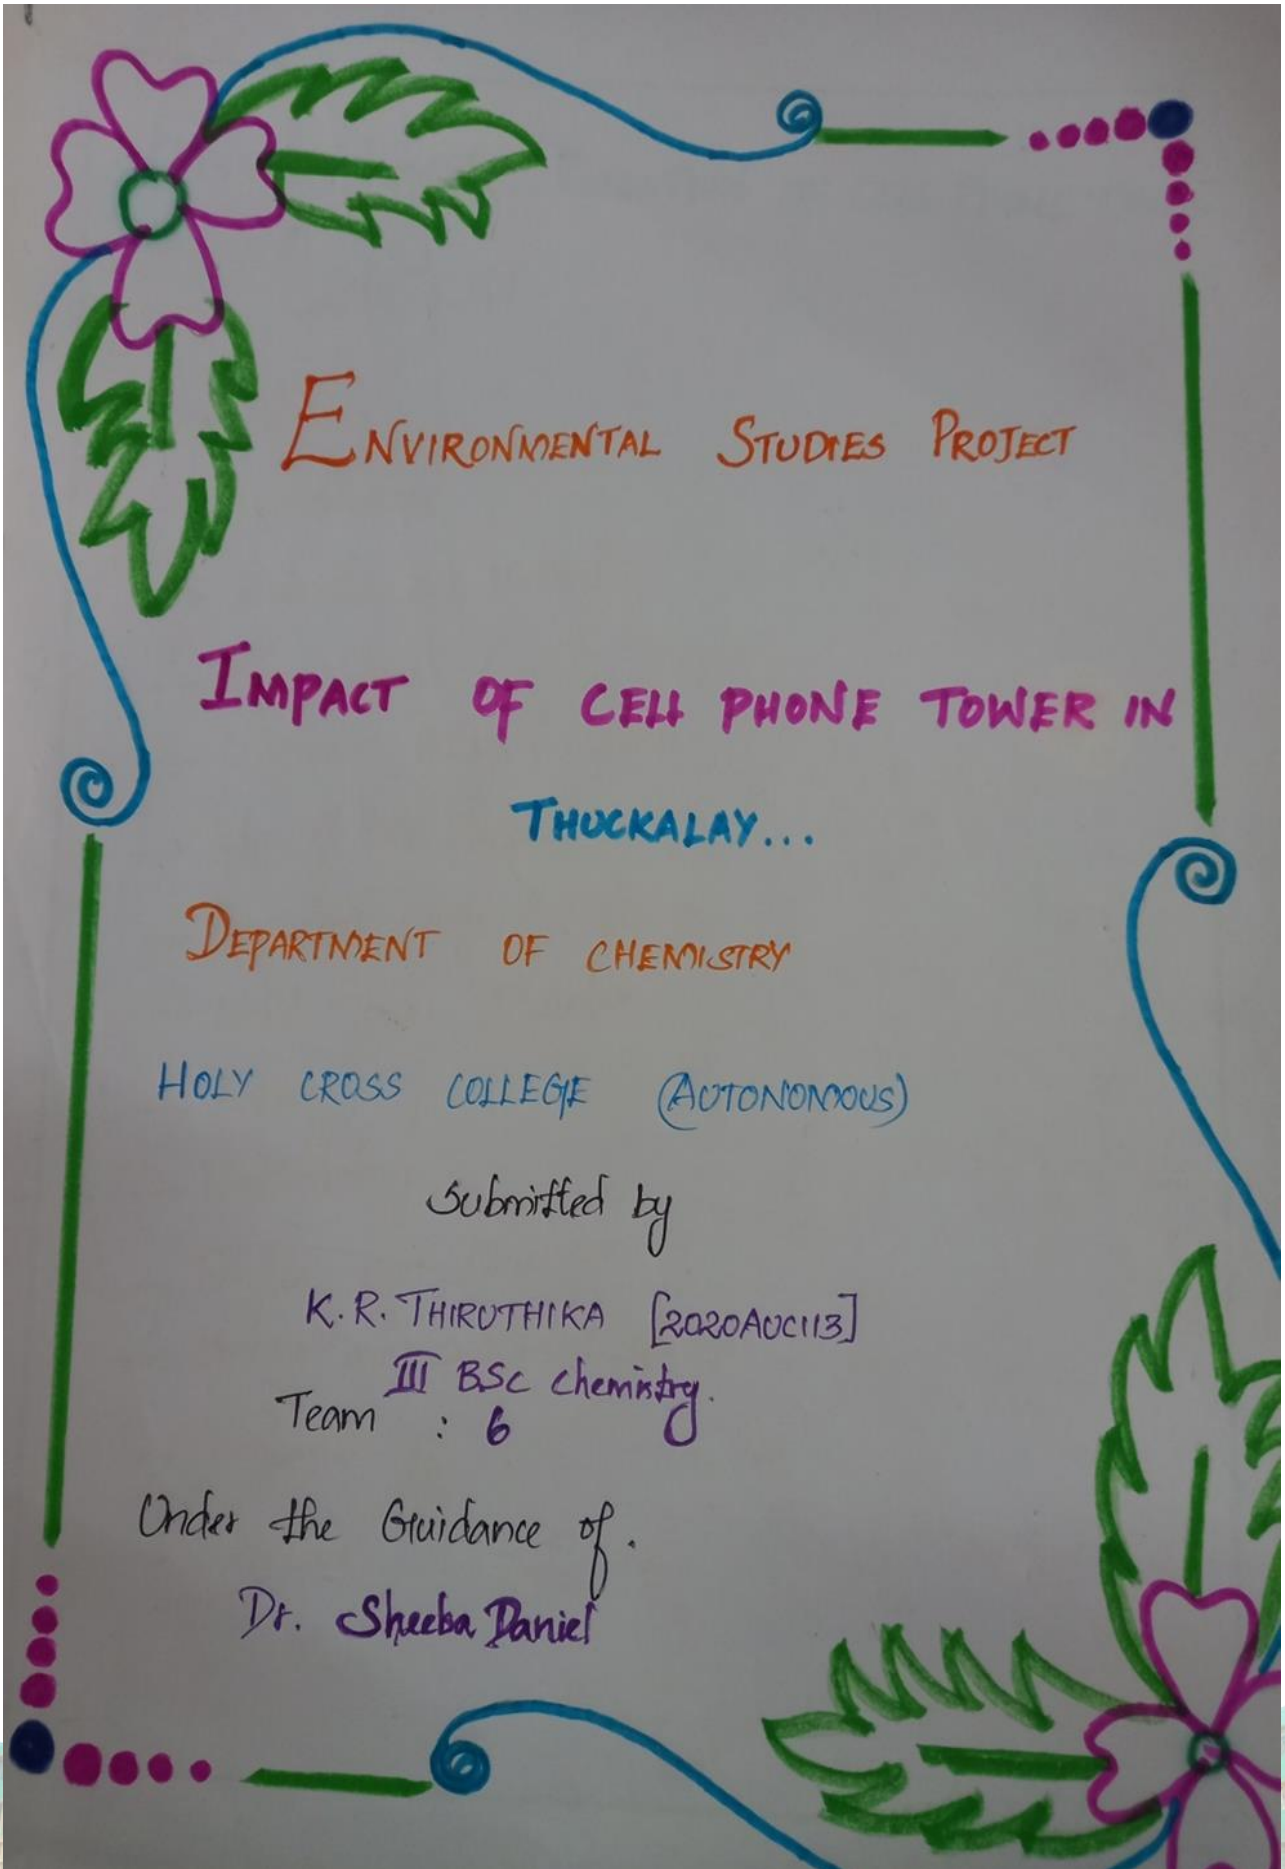 ENVIRONMENTAL STUDIES PROJECT
IMPACT OF CELL PHONE TOWER IN
THUCKALAY...
DEPARTMENT OF CHEMISTRY
HOLY CROSS COLLEGE (AUTONOMOUS)
Submitted by
K.R. THIRUTHIKA [2020AUC113]
III BSc Chemistry.
Team : 6
Under the Guidance of.
Dr. Sheeba Daniel